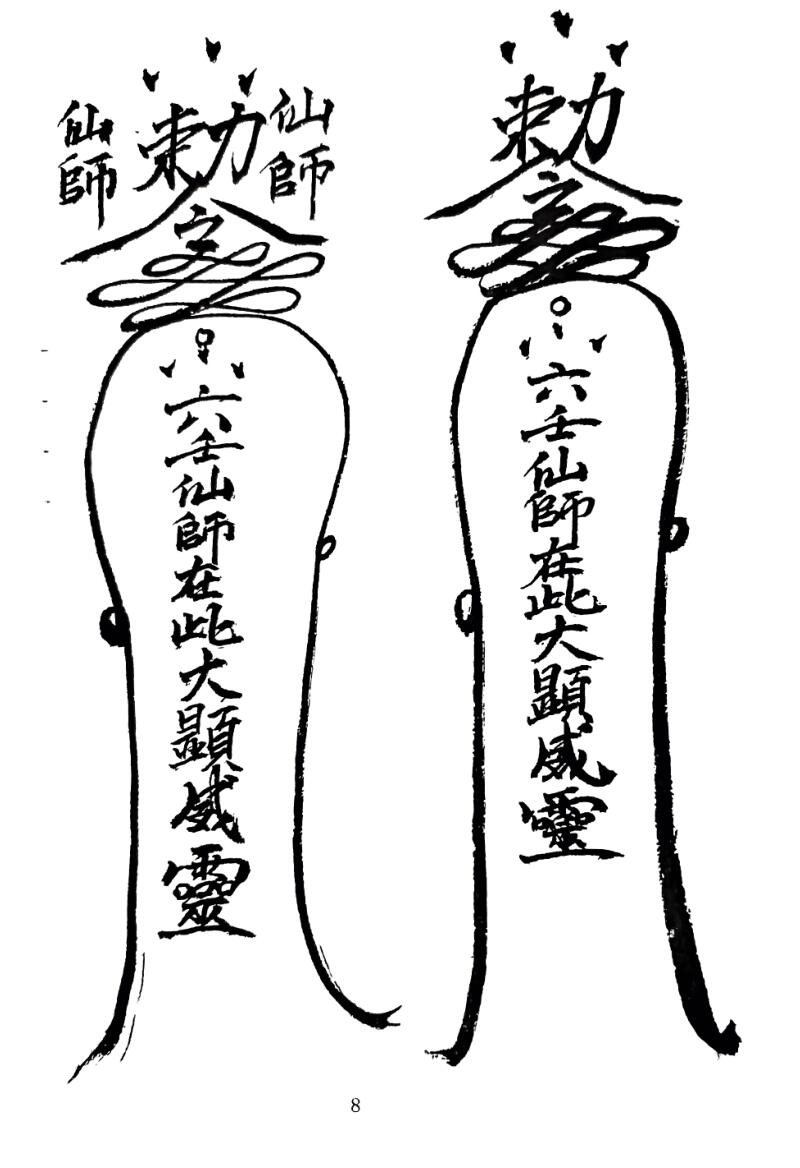 勅
六壬仙師在此大顕威靈
仙師
勅
仙師
六壬仙師在此大顕威靈
8